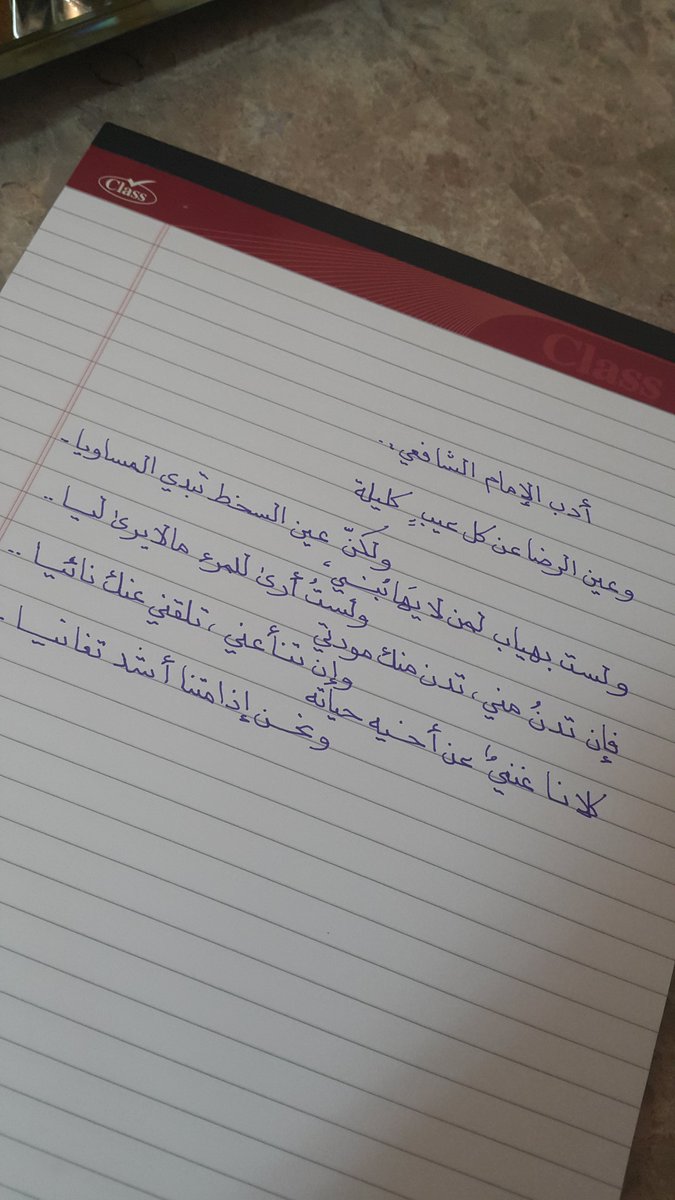 Class
Class
أدب الإمام الشافعي..
وعين الرضا عن كل عيبٍ كليلة
ولكنّ عين السخط تبدي المساويا.
ولست بهياب لمن لا يَهابُنـي،
ولستُ أرى للمرء مالا يرى ليا..
فإن تدنُ مني، تدن منك مودتي
وإن تنأ عني، تلقني عنك نائيا..
كلانا غنيٌ عن أخيه حياته
ونحن إذا متنا أشد تغانيا.